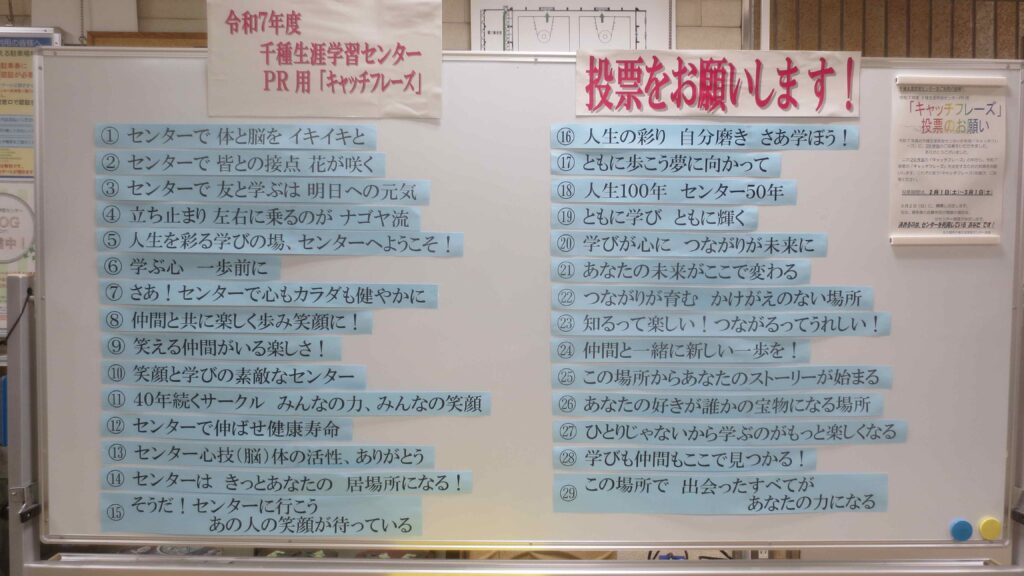 令和7年度
千種生涯学習センター
PR用「キャッチフレーズ」
投票をお願いします！
① センターで 体と脳を イキイキと
② センターで 皆との接点 花が咲く
③ センターで 友と学ぶは 明日への元気
④ 立ち止まり 左右に乗るのが ナゴヤ流
⑤ 人生を彩る学びの場、センターへようこそ！
⑥ 学ぶ心 一歩前に
⑦ さあ！センターで心もカラダも健やかに
⑧ 仲間と共に楽しく歩み笑顔に！
⑨ 笑える仲間がいる楽しさ！
⑩ 笑顔と学びの素敵なセンター
⑪ 40年続くサークル みんなの力、みんなの笑顔
⑫ センターで伸ばせ健康寿命
⑬ センター心技（脳）体の活性、ありがとう
⑭ センターは きっとあなたの 居場所になる！
⑮ そうだ！センターに行こう
あの人の笑顔が待っている
⑯ 人生の彩り 自分磨き さあ学ぼう！
⑰ ともに歩こう夢に向かって
⑱ 人生100年 センター50年
⑲ ともに学び ともに輝く
⑳ 学びが心に つながりが未来に
㉑ あなたの未来がここで変わる
㉒ つながりが育む かけがえのない場所
㉓ 知るって楽しい！つながるってうれしい！
㉔ 仲間と一緒に新しい一歩を！
㉕ この場所からあなたのストーリーが始まる
㉖ あなたの好きが誰かの宝物になる場所
㉗ ひとりじゃないから学ぶのがもっと楽しくなる
㉘ 学びも仲間もここで見つかる！
㉙ この場所で 出会ったすべてが
あなたの力になる
「キャッチフレーズ」
投票のお願い
2月1日（土）～3月1日（土）